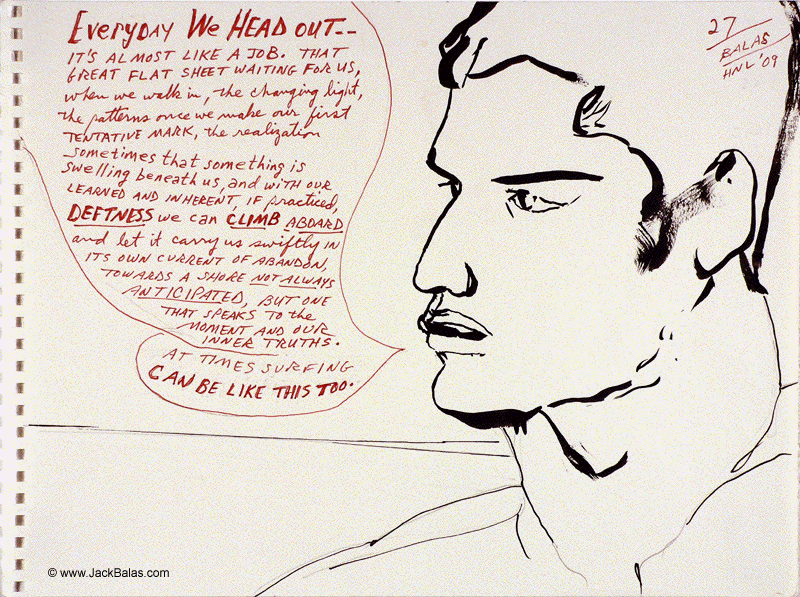 EVERYDAY WE HEAD OUT--
IT'S ALMOST LIKE A JOB. THAT
GREAT FLAT SHEET WAITING FOR US,
when we walk in, the changing light,
the patterns once we make our first
TENTATIVE MARK, the realization
sometimes that something is
swelling beneath us, and WITH OUR
LEARNED AND INHERENT, IF practiced,
DEFTNESS we can CLIMB ABOARD
and let it carry us swiftly IN
ITS OWN CURRENT OF ABANDON,
TOWARDS A SHORE NOT ALWAYS
ANTICIPATED, BUT ONE
THAT SPEAKS TO the
MOMENT AND OUR
INNER TRUTHS.
AT TIMES SURFING
CAN BE LIKE THIS TOO.
27
BALAS
HNL '09
© www.JackBalas.com